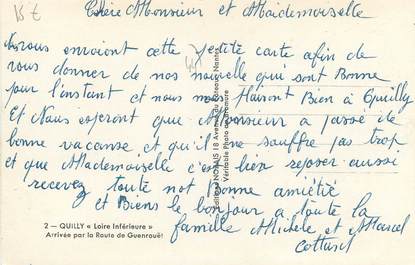 Chère Monsieur et Maidemoiselle
nous envoiont cette petite carte afin de
vous donner de nos nouvelle qui sont Bonne
pour l'instant et nous nous Plaisont Bien à Quilly
Et Nous esperont que Monsieur a passé de
bonne vacanse et qu'il ne souffre pas trop
et que Mademoiselle c'est bien reposer aussi
recevez toute not bonne amiétié
et Biens le bonjour a toute la
famille Michèle et Marcel
2 — QUILLY « Loire Inférieure »
Arrivée par la Route de Guenrouët
Véritable Photo au Bromure